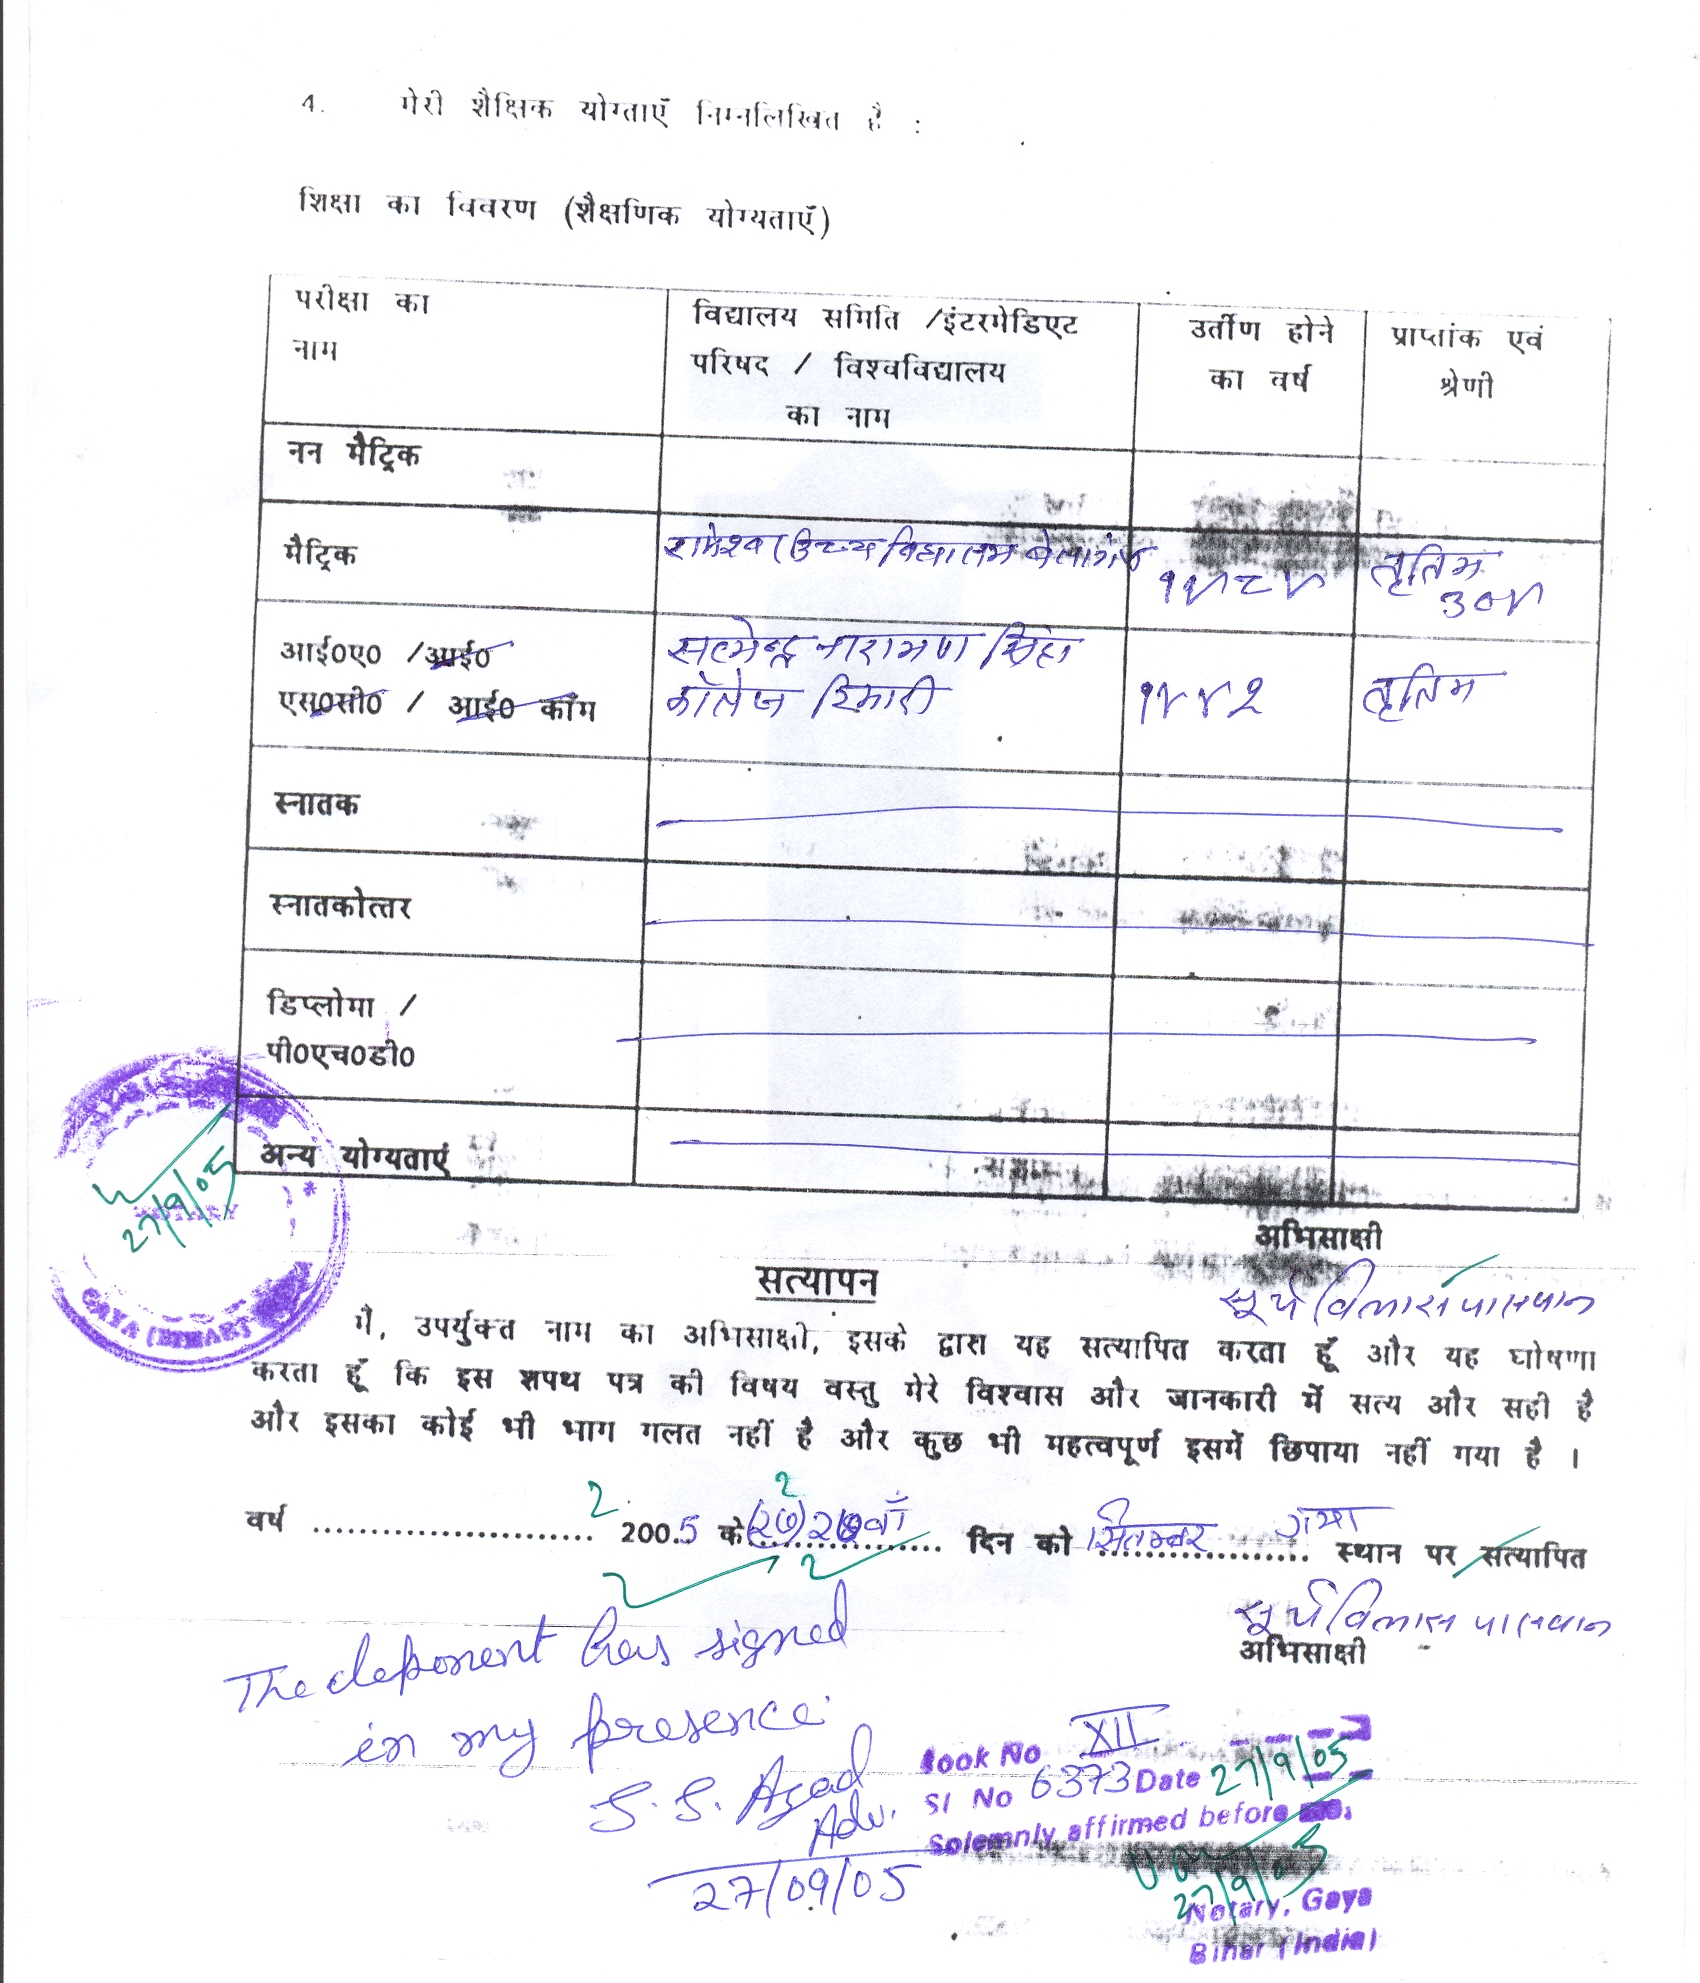 4. मेरी शैक्षिक योग्ताएँ निम्नलिखित है :
शिक्षा का विवरण (शैक्षणिक योग्यताएँ)
परीक्षा का
नाम
विद्यालय समिति /इंटरमेडिएट
परिषद / विश्वविद्यालय
का नाम
उर्तीण होने
का वर्ष
प्राप्तांक एवं
श्रेणी
नन मैट्रिक
मैट्रिक
रामेश्वर उच्च विद्यालय बेलागंज
तृतिय
आई0ए0 /आई0
एस0सी0 / आई0 कॉम
सत्येन्द्र नारायण सिंह
कॉलेज टिकारी
तृतिय
स्नातक
स्नातकोत्तर
डिप्लोमा /
पी0एच0डी0
अन्य योग्यताएं
27/9/05
GAYA (BIHAR)
अभिसाक्षी
सूर्य विलास पासवान
सत्यापन
मै, उपर्युक्त नाम का अभिसाक्षी, इसके द्वारा यह सत्यापित करता हूँ और यह घोषणा
करता हूँ कि इस शपथ पत्र की विषय वस्तु मेरे विश्वास और जानकारी में सत्य और सही है
और इसका कोई भी भाग गलत नहीं है और कुछ भी महत्वपूर्ण इसमें छिपाया नहीं गया है ।
वर्ष ........................ 200.5 के (२७) २७वाँ ................ दिन को सितम्बर .................. गया स्थान पर सत्यापित
सूर्य विलास पासवान
अभिसाक्षी
The deponent has signed
in my presence.
S. S. Azad
Adv.
27/09/05
Book No XII
Sl No 6373 Date 27/9/05
Solemnly affirmed before
27/9/05
Notary, Gaya
Bihar (India)